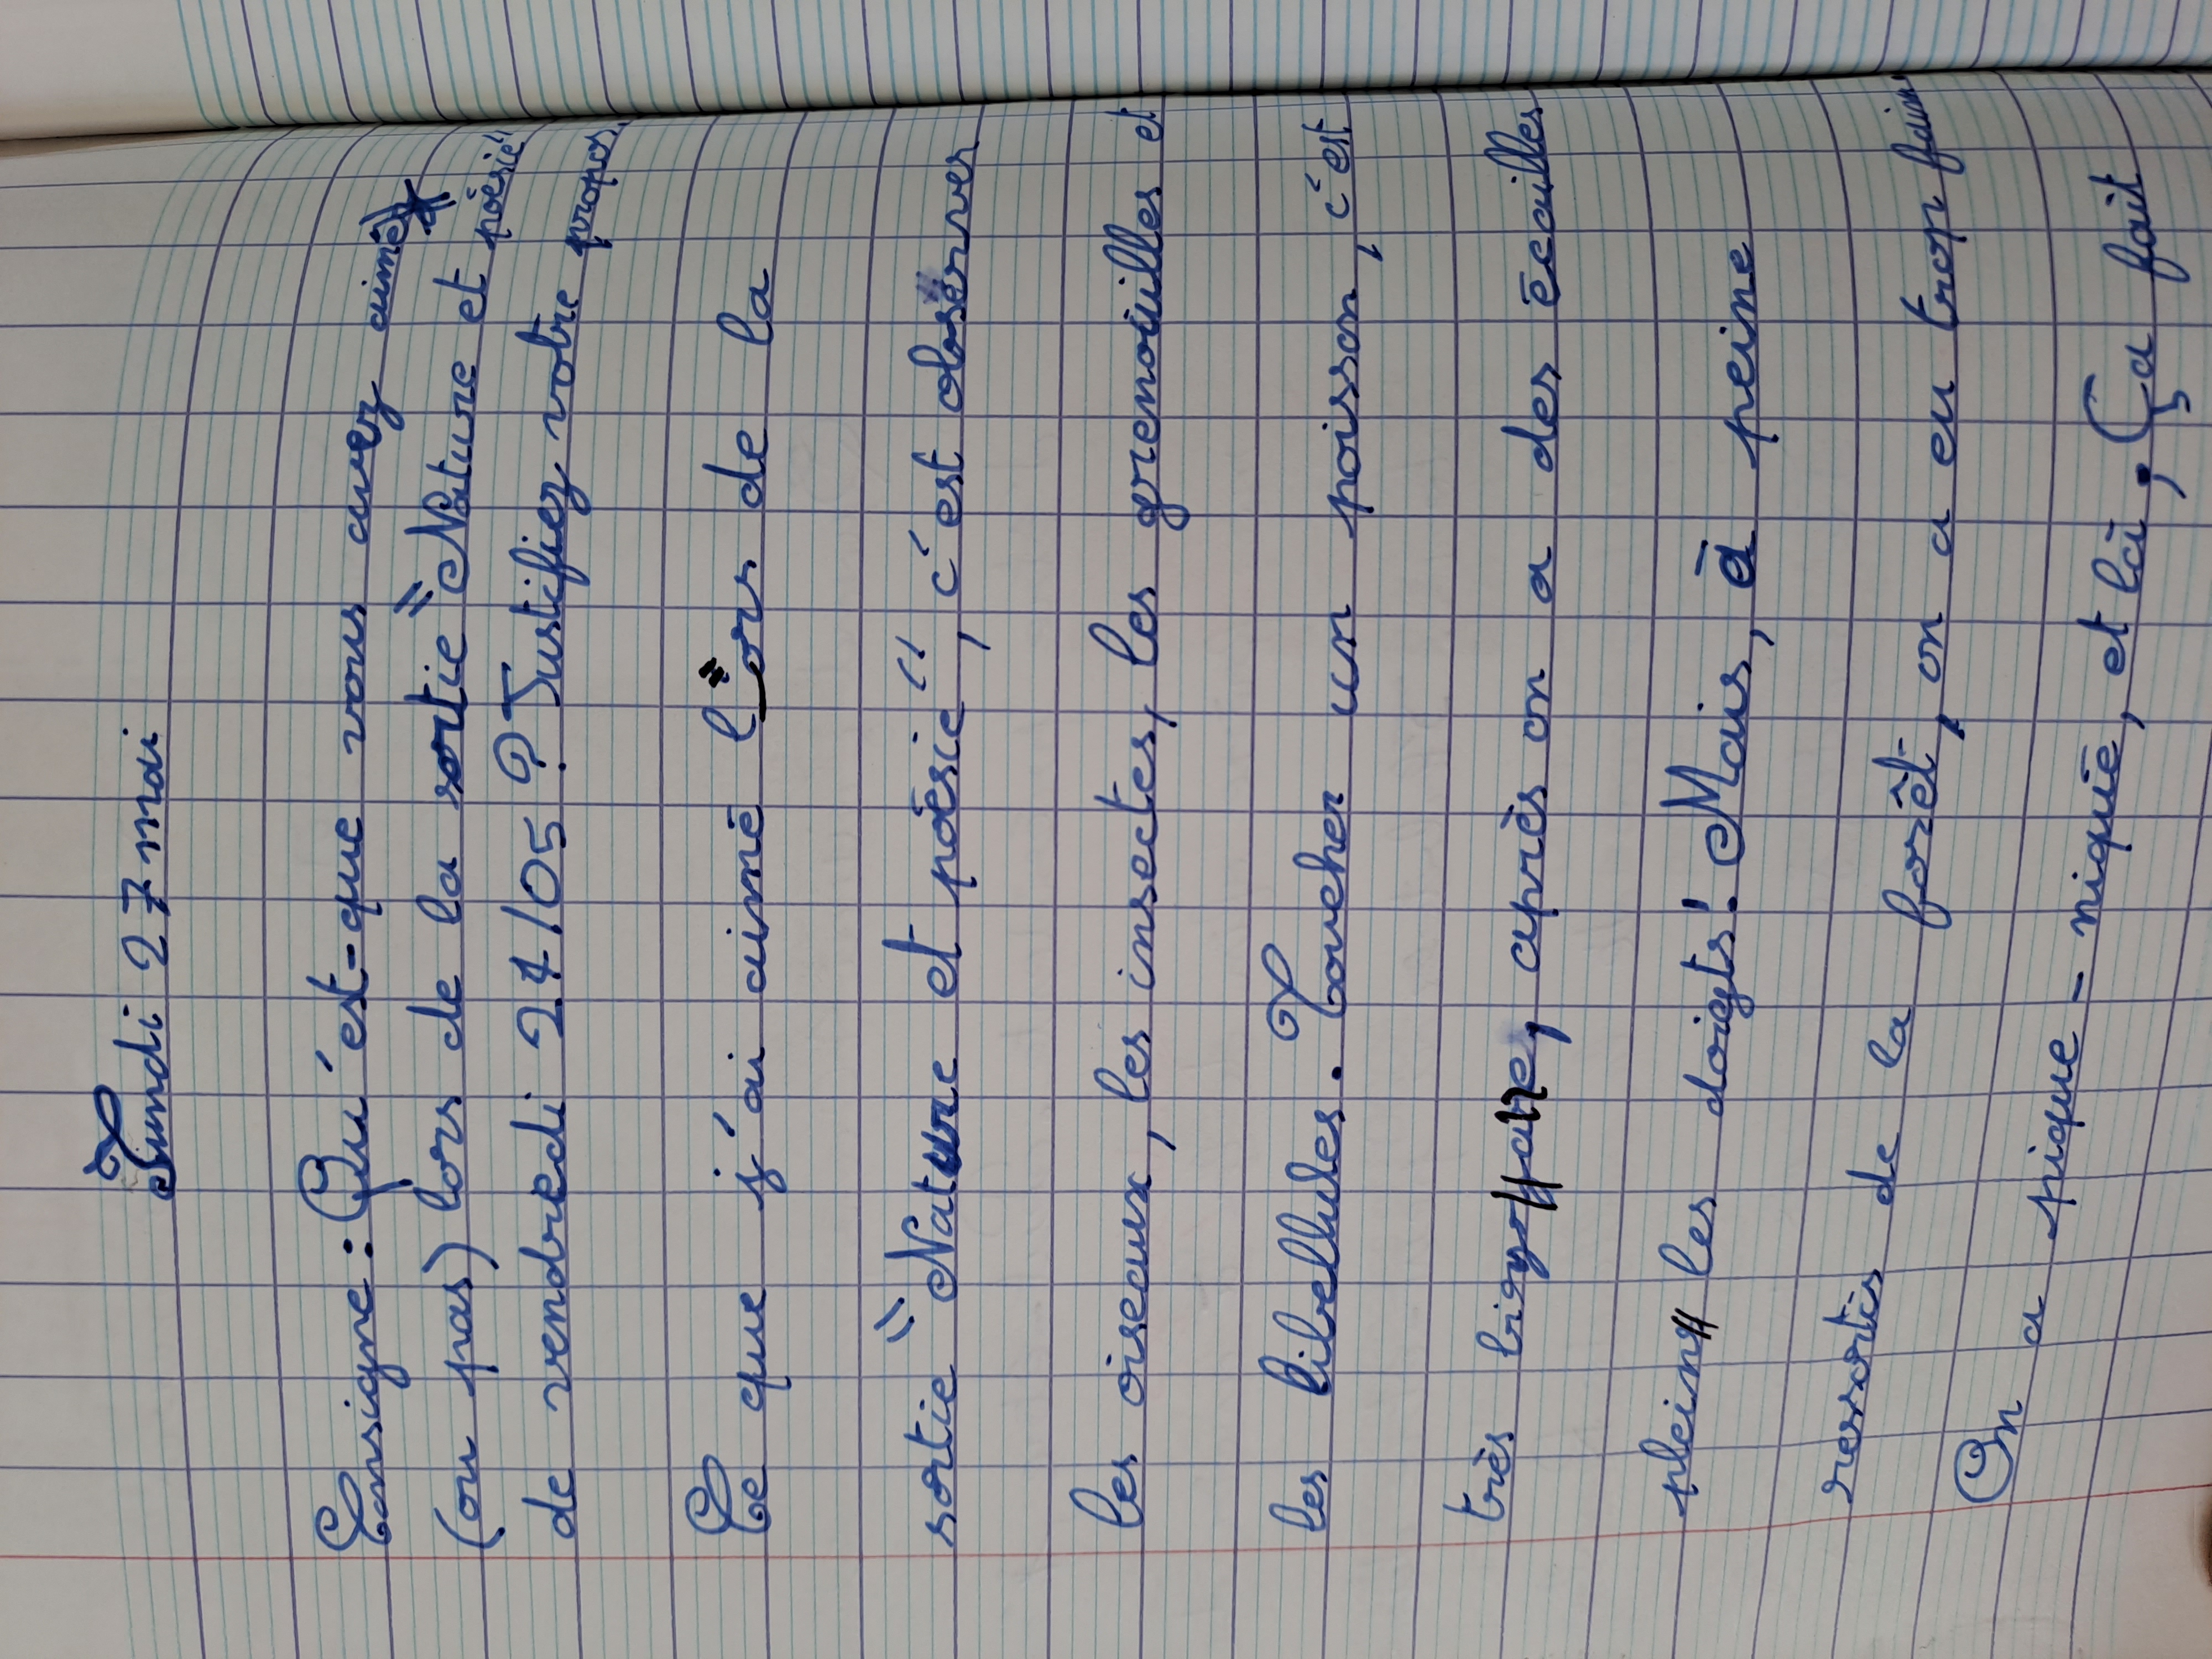 Lundi 27 mai
Consigne : Qu'est-que vous avez aimé
(ou pas) lors de la sortie "Nature et poésie"
de vendredi 24/05 ? Justifiez votre propos.
Ce que j'ai aimé lors de la
sortie "Nature et poésie", c'est observer
les oiseaux, les insectes, les grenouilles et
les libellules. Toucher un poisson, c'est
très bizzare, après on a des écailles
pleins les doigts! Mais, à peine
resortis de la forêt, on a eu trop faim
On a pique-niqué, et là, Ça fait